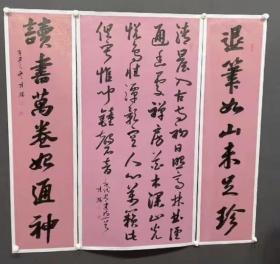 退筆如山未足珍
清晨入古寺初日照高林曲徑
通幽處禪房花木深山光
悅鳥性潭影空人心萬籟此
俱寂惟聞鐘磬音
讀書萬卷始通神